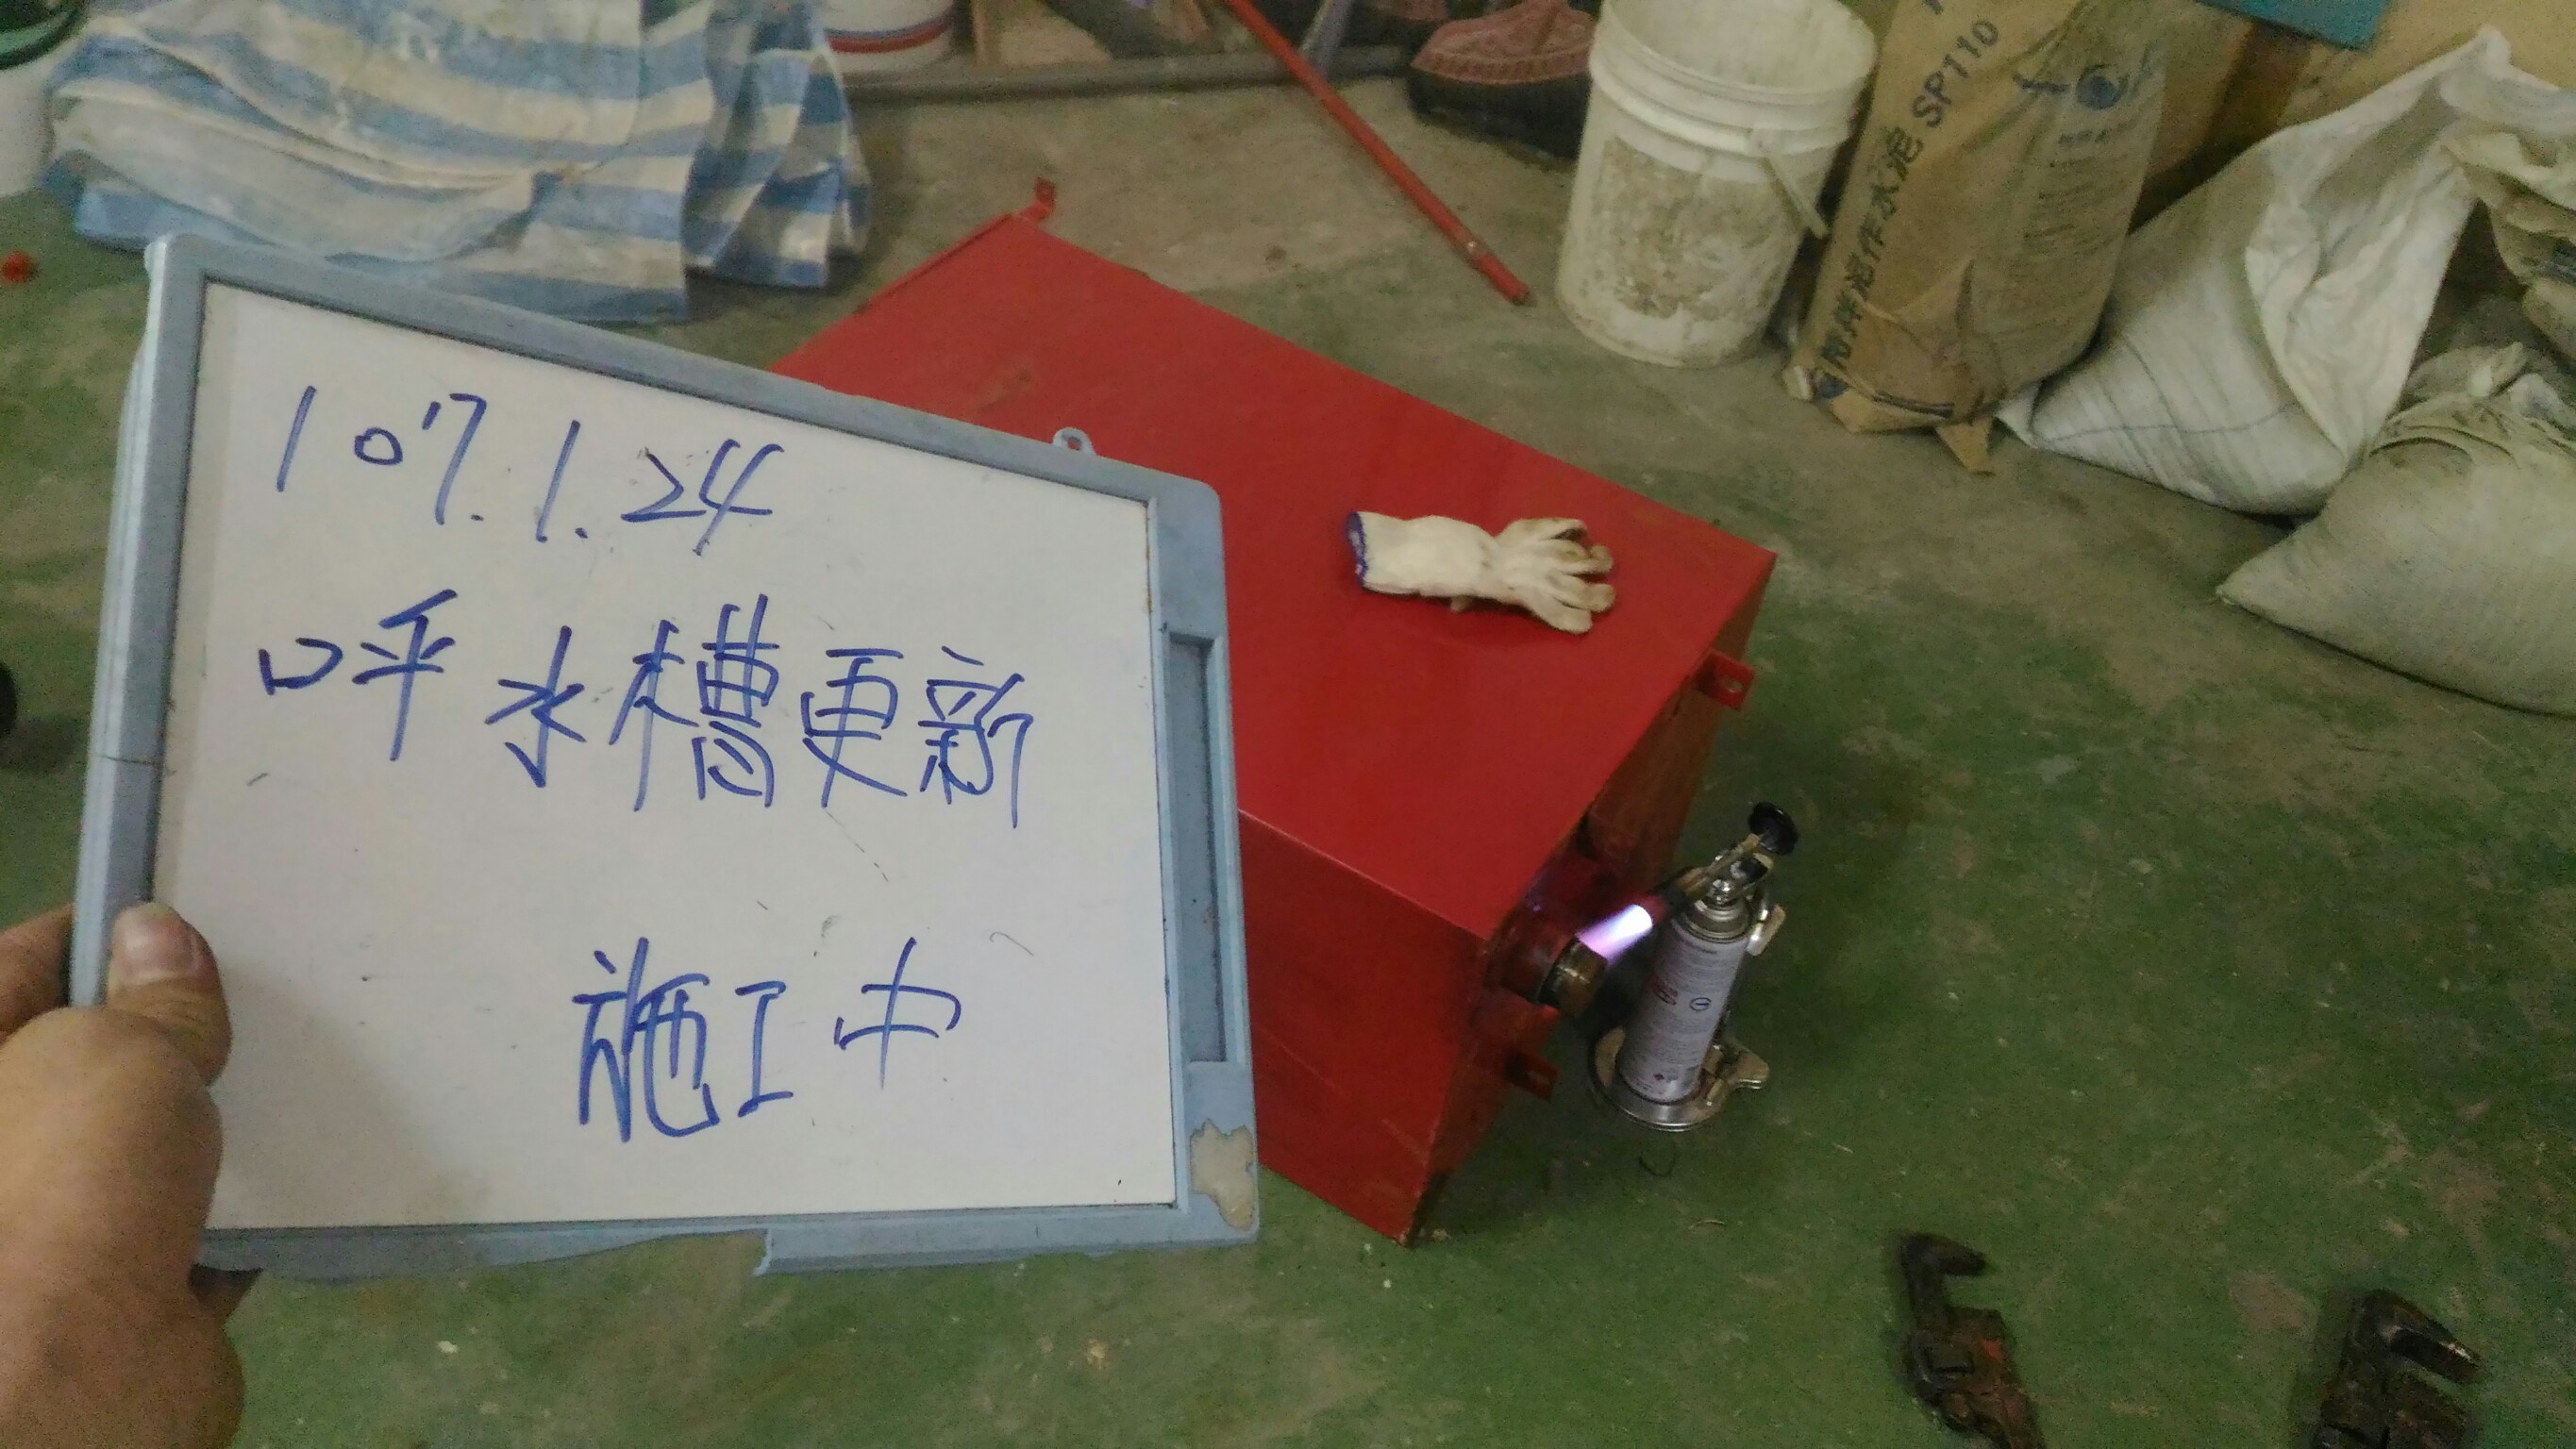 107.1.24
呼水槽更新
施工中
SP110